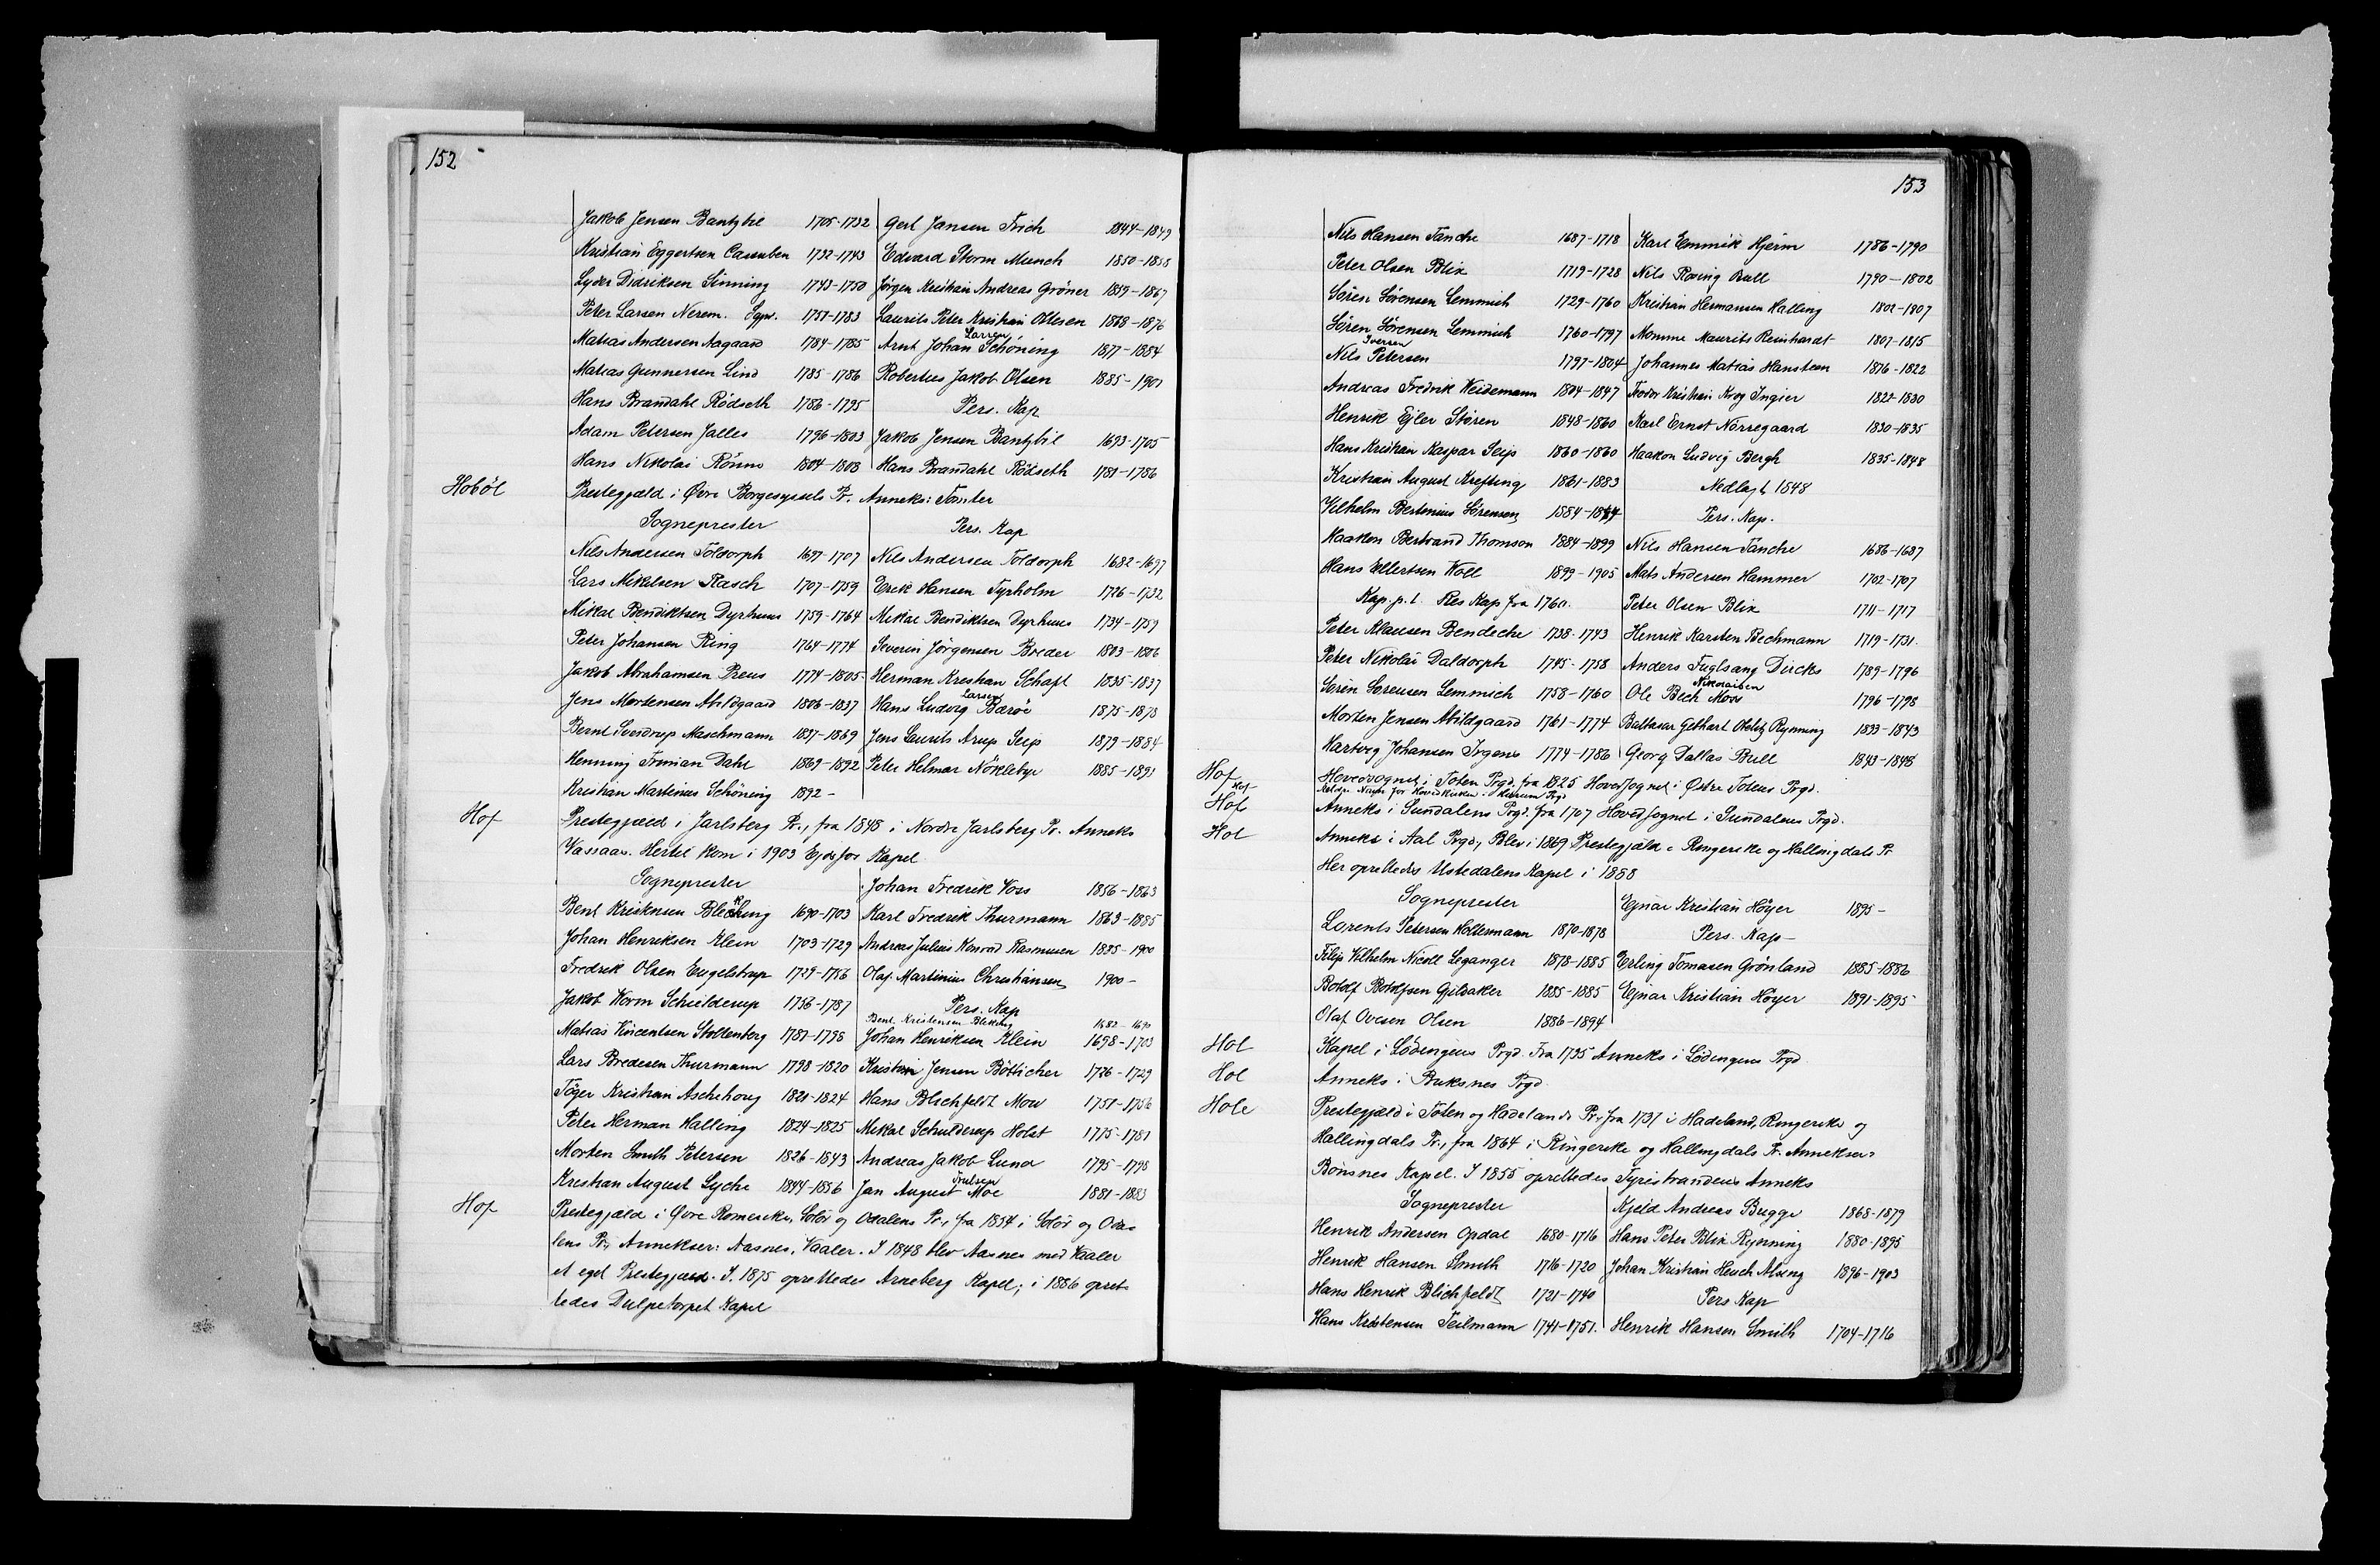 152
Jakob Jensen Bantzbil 1705-1732
Kristian Eggertsen Cassuben 1732-1743
Lyder Didriksen Sinning 1743-1750
Peter Larsen Nerem. Sgpr. 1751-1783
Matias Andersen Aagaard 1784-1785
Matias Gunnersen Lind 1785-1786
Hans Brandahl Rödseth 1786-1795
Adam Petersen Jalles 1796-1803
Hans Nikolai Rönne 1804-1808
Gert Jansen Frich 1844-1849
Edvard Storm Munch 1850-1858
Jörgen Kristian Andreas Gröner 1859-1867
Laurits Peter Kristian Ottesen 1868-1876
Larsen
Arnt Johan Schöning 1877-1884
Robertus Jakob Olsen 1885-1901
Pers. Kap
Jakob Jensen Bantzbil 1693-1705
Hans Brandahl Rödseth 1781-1786
Hobøl
Prestegjæld i Øvre Borgesyssels Pr. Anneks: Tomter
Sogneprester
Nils Andersen Toldorph 1697-1707
Lars Mikelsen Rasch 1707-1759
Mikal Bendiktsen Dyrhuus 1759-1764
Peter Johansen Ring 1764-1774
Jakob Abrahamsen Preus 1774-1805
Jens Mortensen Abildgaard 1806-1837
Bernt Sverdrup Maschmann 1837-1869
Henning Froman Dahl 1869-1892
Kristian Martinius Schöning 1892-
Pers. Kap
Nils Andersen Toldorph 1682-1697
Erik Hansen Tyrholm 1726-1732
Mikal Bendiktsen Dyrhuus 1734-1759
Severin Jörgensen Breder 1803-1806
Herman Kristian Schaft 1835-1837
Larsen
Hans Ludvig Baröe 1875-1878
Jens Laurits Arup Seip 1879-1884
Peter Helmer Nöklebye 1885-1891
Hof
Prestegjæld i Jarlsberg Pr., fra 1848 i Nordre Jarlsberg Pr. Anneks
Vassaas. Hertil kom i 1903 Ejdsfos Kapel
Sogneprester
Bent Kristensen Bleking 1690-1703
Johan Henriksen Klein 1703-1729
Fredrik Olsen Engelstrup 1729-1756
Jakob Worm Schielderup 1756-1787
Matias Vincentsen Stoltenberg 1787-1798
Lars Bredesen Thurmann 1798-1820
Töger Kristian Aschehoug 1821-1824
Peter Herman Halling 1824-1825
Morten Smith Petersen 1826-1843
Kristian August Lyche 1844-1856
Johan Fredrik Voss 1856-1863
Karl Fredrik Thurmann 1863-1885
Andreas Julius Konrad Rasmussen 1885-1900
Olaf Martinius Christiansen 1900-
Pers. Kap
Bent Kristensen Bleking 1682-1690
Johan Henriksen Klein 1698-1703
Kristian Jensen Bötticher 1726-1729
Hans Blichfeldt Mow 1751-1756
Mikal Schielderup Holst 1775-1781
Andreas Jakob Lund 1795-1798
Jan August Moe 1881-1883
Hof
Prestegjæld i Øvre Romerike, Solör og Odalens Pr., fra 1854 i Solör og Oda-
lens Pr. Annekser: Aasnes, Vaaler. I 1848 blev Aasnes med Vaaler
et eget Prestegjæld. I 1875 oprettedes Arneberg Kapel; i 1886 opret-
tedes Dulpetorpet Kapel
153
Nils Hansen Tanche 1687-1718
Peter Olsen Blix 1719-1728
Sören Sörensen Lemmich 1729-1760
Sören Sörensen Lemmich 1760-1797
Iversen
Nils Petersen 1797-1804
Andreas Fredrik Weidemann 1804-1847
Henrik Ejler Stören 1848-1860
Hans Kristian Kaspar Seip 1860-1860
Kristian August Krefting 1861-1883
Vilhelm Bertinius Sörensen 1884-1884
Haakon Bertrand Thomson 1884-1899
Hans Ellertsen Woll 1899-1905
Kap. p. l. Res Kap fra 1760.
Peter Klausen Bendeche 1738-1743
Peter Nikolai Daldorph 1745-1758
Sören Sörensen Lemmich 1758-1760
Morten Jensen Abildgaard 1761-1774
Hartvig Johansen Irgens 1774-1786
Karl Emmik Hjerm 1786-1790
Nils Rosing Bull 1790-1802
Kristian Hermansen Halling 1802-1807
Momme Maurits Reinhardt 1807-1815
Johannes Matias Hansteen 1816-1822
Fredor Kristian Krog Ingier 1822-1830
Karl Ernst Nörregaard 1830-1835
Haakon Ludvig Bergh 1835-1848
Nedlagt 1848
Pers. Kap.
Nils Hansen Tanche 1686-1687
Mats Andersen Hammer 1702-1707
Peter Olsen Blix 1711-1717
Henrik Karsten Bechmann 1719-1731.
Anders Fuglsang Dircks 1789-1796
Nikolaisen
Ole Bech Moss 1796-1798
Baltasar Gebhart Obelitz Rynning 1833-1843
Georg Dallas Bull 1843-1848
Hof
Hovedsognet i Toten Prgd., fra 1825 Hovedsognet i Østre Totens Prgd.
Hof
Hof
Anneks i Sundalens Prgd. fra 1707 Hovedsognet i Sundalens Prgd.
Hol
Anneks i Aal Prgd., Blev i 1869 Prestegjæld i Ringerike og Hallingdals Pr
Her oprettedes Ustedalens Kapel i 1888
Sogneprester
Lorents Petersen Koltermann 1870-1878
Filip Vilhelm Nicoll Leganger 1878-1885
Botolf Botolfsen Gjilsaker 1885-1885
Olaf Ovesen Olsen 1886-1894
Ejnar Kristian Höyer 1895-
Pers. Kap-
Erling Tomasen Grönland 1885-1886
Ejnar Kristian Höyer 1891-1895
Hol
Kapel i Lödingens Prgd. Fra 1795 Anneks i Lödingens Prgd
Hol
Anneks i Buksnes Prgd.
Hole
Prestegjæld i Toten og Hadelands Pr. fra 1731 i Hadeland, Ringerike og
Hallingdals Pr., fra 1864 i Ringerike og Hallingdals Pr. Annekser:
Bönsnes Kapel. I 1855 oprettedes Tyristrandens Anneks
Sogneprester
Henrik Andersen Opdal 1680-1716
Henrik Hansen Smith 1716-1720
Hans Henrik Blichfeldt 1721-1740
Hans Kristensen Teilmann 1741-1751.
Kjeld Andreas Bugge 1868-1879
Hans Peter Blix Rynning 1880-1895
Johan Kristian Heuch Alsing 1896-1903
Pers Kap
Henrik Hansen Smith 1704-1716